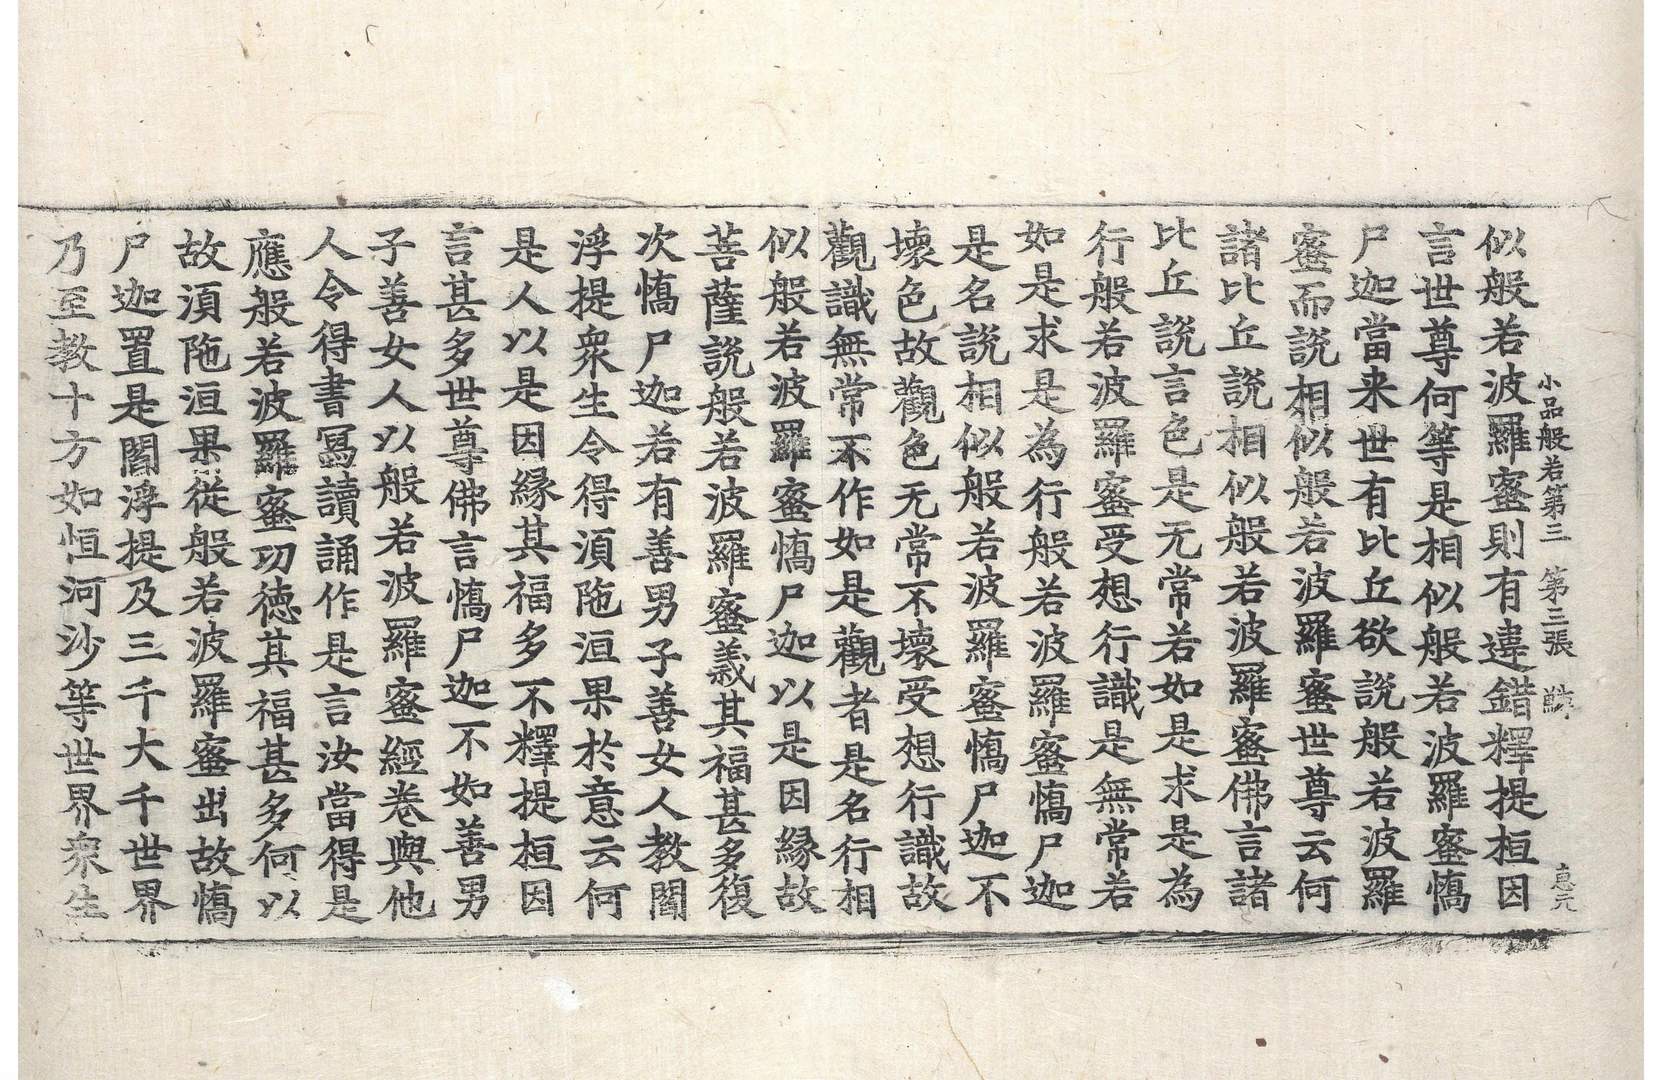 小品般若第三 第三張 惠元
似般若波羅蜜則有違錯釋提桓因
言世尊何等是相似般若波羅蜜憍
尸迦當来世有比丘欲說般若波羅
蜜而說相似般若波羅蜜世尊云何
諸比丘說相似般若波羅蜜佛言諸
比丘說言色是无常若如是求是為
行般若波羅蜜受想行識是無常若
如是求是為行般若波羅蜜憍尸迦
是名說相似般若波羅蜜憍尸迦不
壞色故觀色无常不壞受想行識故
觀識無常不作如是觀者是名行相
似般若波羅蜜憍尸迦以是因緣故
菩薩說般若波羅蜜義其福甚多復
次憍尸迦若有善男子善女人教閻
浮提衆生令得湏陁洹果於意云何
是人以是因緣其福多不釋提桓因
言甚多世尊佛言憍尸迦不如善男
子善女人以般若波羅蜜經卷與他
人令得書冩讀誦作是言汝當得是
應般若波羅蜜功德其福甚多何以
故湏陁洹果從般若波羅蜜出故憍
尸迦置是閻浮提及三千大千世界
乃至教十方如恒河沙等世界衆生